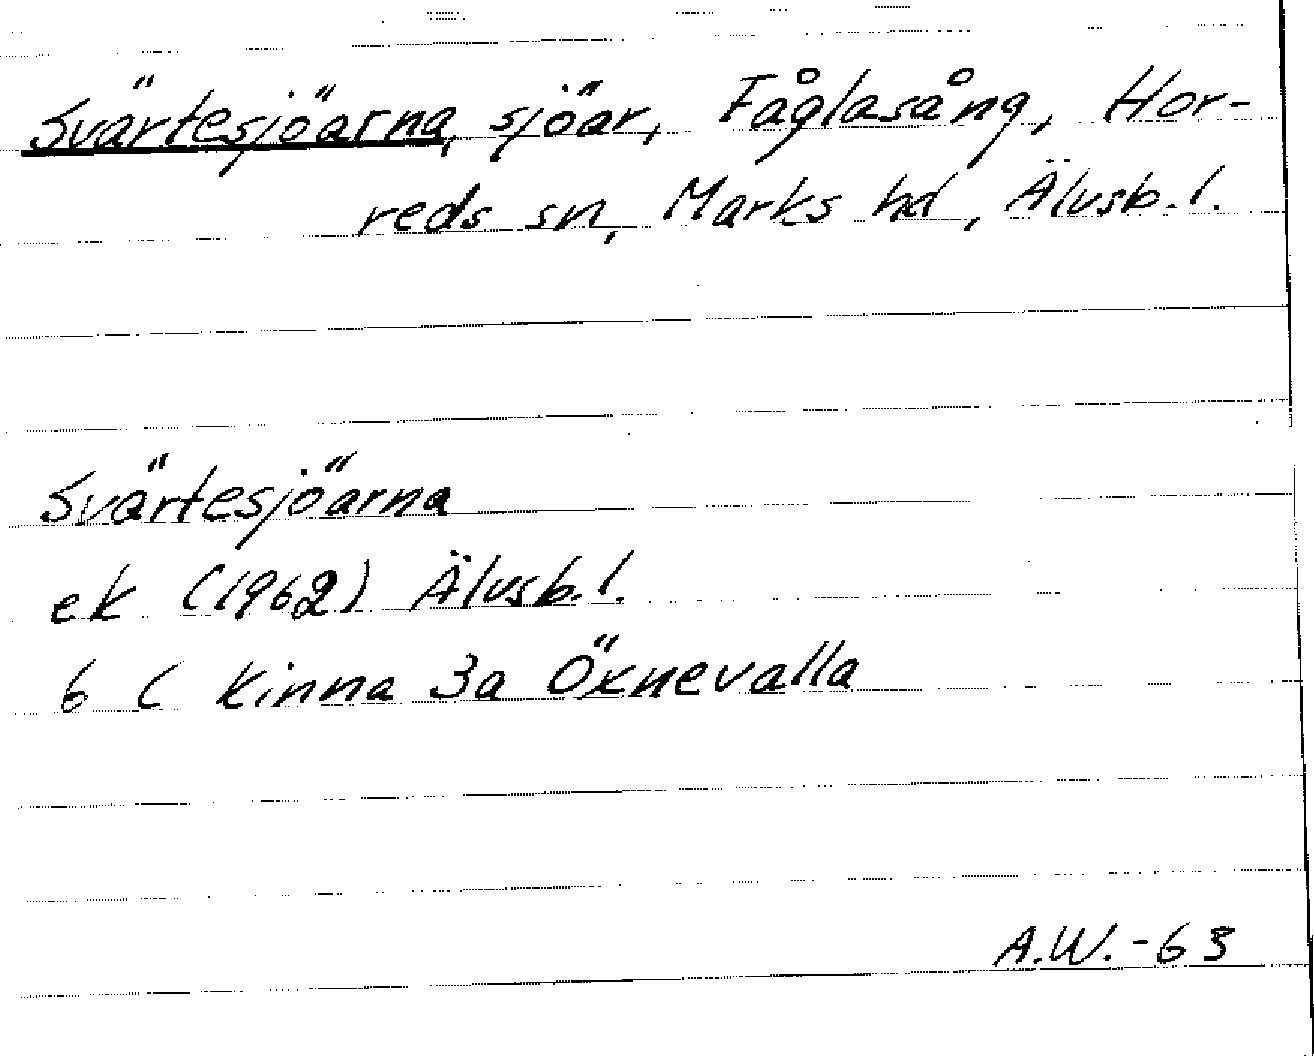 Svärtesjöarna, sjöar, Fåglasång, Hor-
reds sn, Marks hd, Älvsb.l.
Svärtesjöarna
ek (1962) Älvsb.l.
6 C Kinna 3a Öxnevalla
A.W.-63